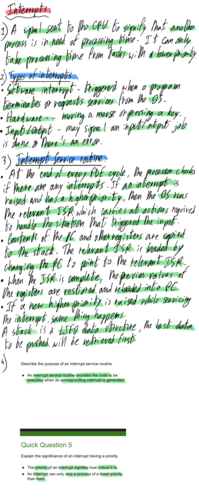 Interrupts
1) A signal sent to the CPU to signify that another
process is in need of processing time. It can only
take processing time from tasks with a lower priority
2) Types of interrupts
• Software interrupt - triggered when a program
terminates or requests services from the OS.
• Hardware - moving a mouse or pressing a key.
• Input/Output - may signal an input/output job
is done or there's an error.
3) Interrupt service routine
• At the end of every FDE cycle, the processor checks
if there are any interrupts. If an interrupt is
raised and has a higher priority, then the OS runs
the relevant ISR which carries out actions required
to handle the situation that triggered the input.
• Contents of the PC and other registers are copied
to the stack. The relevant ISR is loaded by
changing the PC to point to the relevant ISR.
• When the ISR is complete, the previous values of
the registers are restored and reloaded into a PC
• If a new higher priority is raised while servicing
the interrupt same thing happens.
A stack is a LIFO data structure, the last data
to be pushed will be retrieved first.
4)
Describe the purpose of an interrupt service routine.
• An interrupt service routine provides the code to be
executed when its corresponding interrupt is generated.
Quick Question 5
Explain the significance of an interrupt having a priority
• The priority of an interrupt signifies how critical it is.
• An interrupt can only stop a process of a lower priority
than itself.